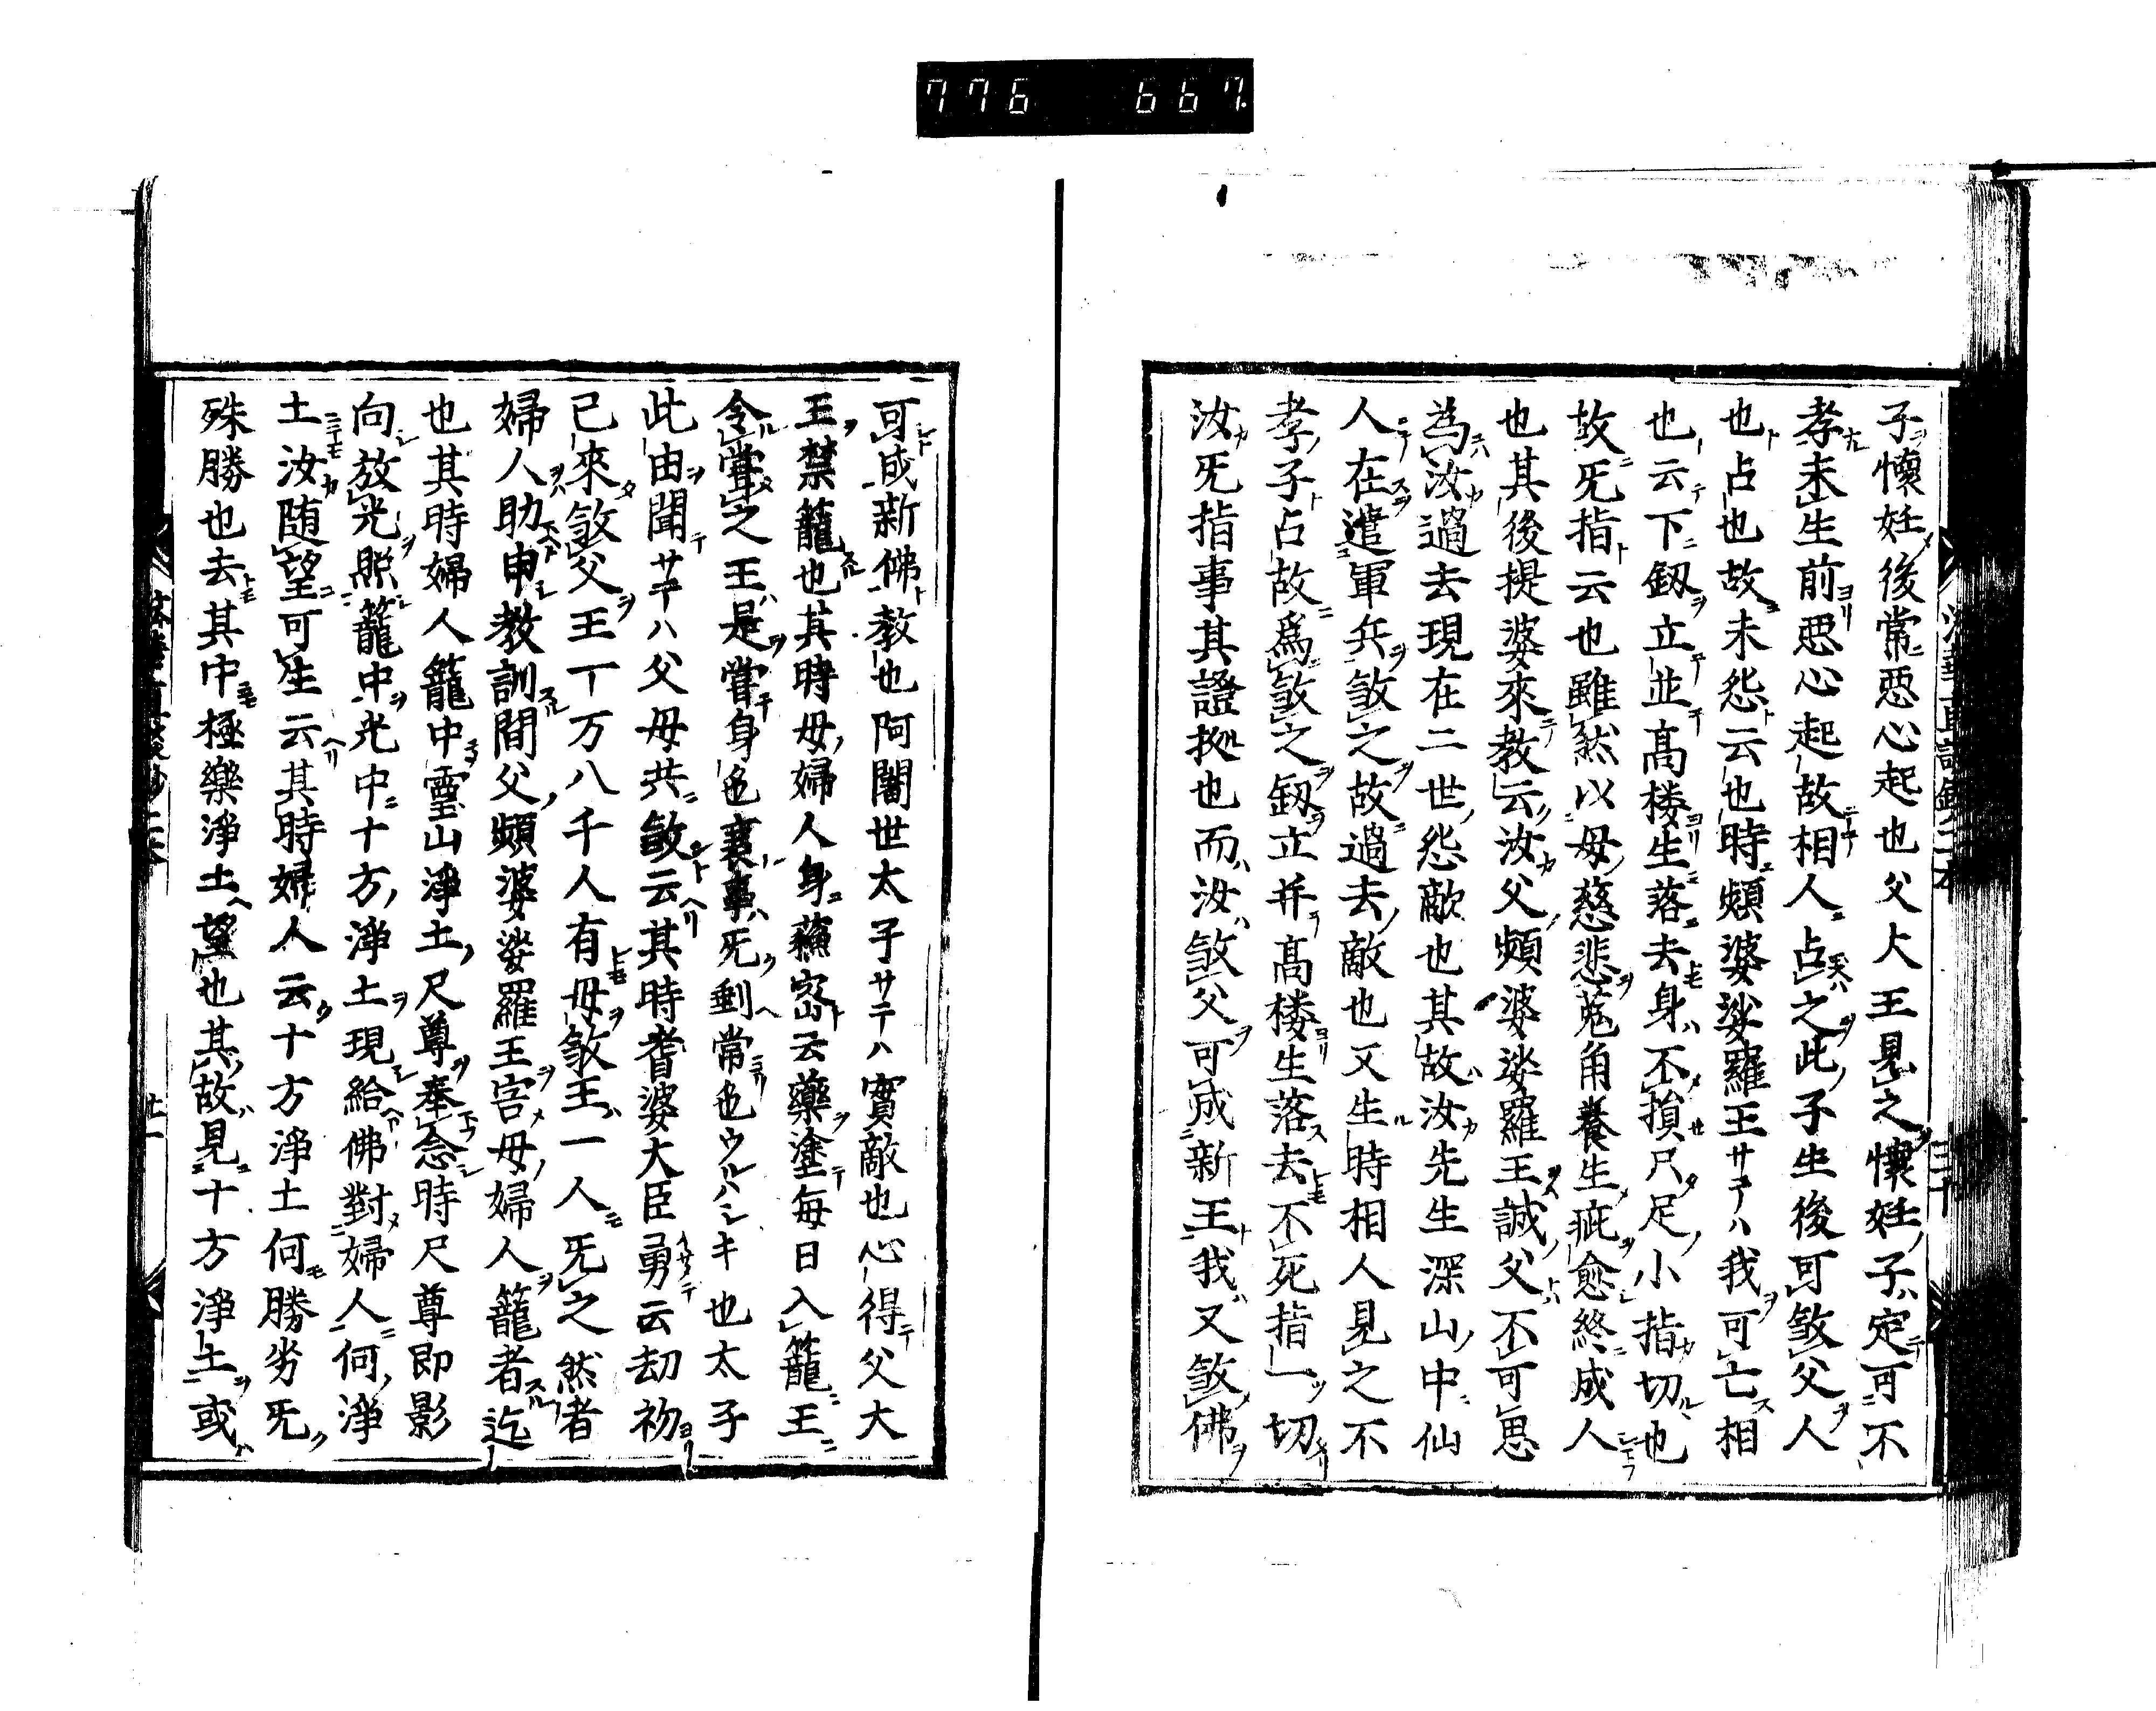 776 667
子懷妊後常惡心起也父大王見之懷妊子定可不
孝未生前惡心起故相人占之此子生後可敓父人
也占也故未怨云也時頻婆娑羅王サテハ我可亡相
也云下釼立並高楼生落去身不損尺足小指切也
故旡指云也雖然以母慈悲蒐角養生疵愈終成人
也其後提婆來教云汝父頻婆娑羅王誠父不可思
為汝過去現在二世怨敵也其故汝先生深山中仙
人在遣軍兵敓之故過去敵也又生時相人見之不
孝子占故爲敓之釼立并高楼生落去不死指一切
汝旡指事其證拠也而汝敓父可成新王我又敓佛
可成新佛教也阿闍世太子サテハ實敵也心得父大
王禁籠也其時母婦人身蘓宻云藥塗毎日入籠王
令甞之王是甞身色裏事旡剰常也ウルハシキ也太子
此由聞サテハ父母共敓云其時耆婆大臣勇云刧初
已來敓父王一万八千人有母敓王一人旡之然者
婦人助申教訓間父頻婆娑羅王害母婦人籠者迄
也其時婦人籠中霊山淨土尺尊奉念時尺尊即影
向放光照籠中光中十方淨土現給佛對婦人何淨
土汝随望可生云其時婦人云十方淨土何勝劣旡
殊勝也去其中極樂淨土望也其故見十方淨土或